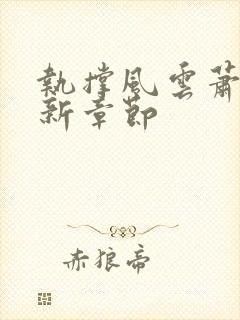 執撑風雲蕭
新章節
赤狼帝